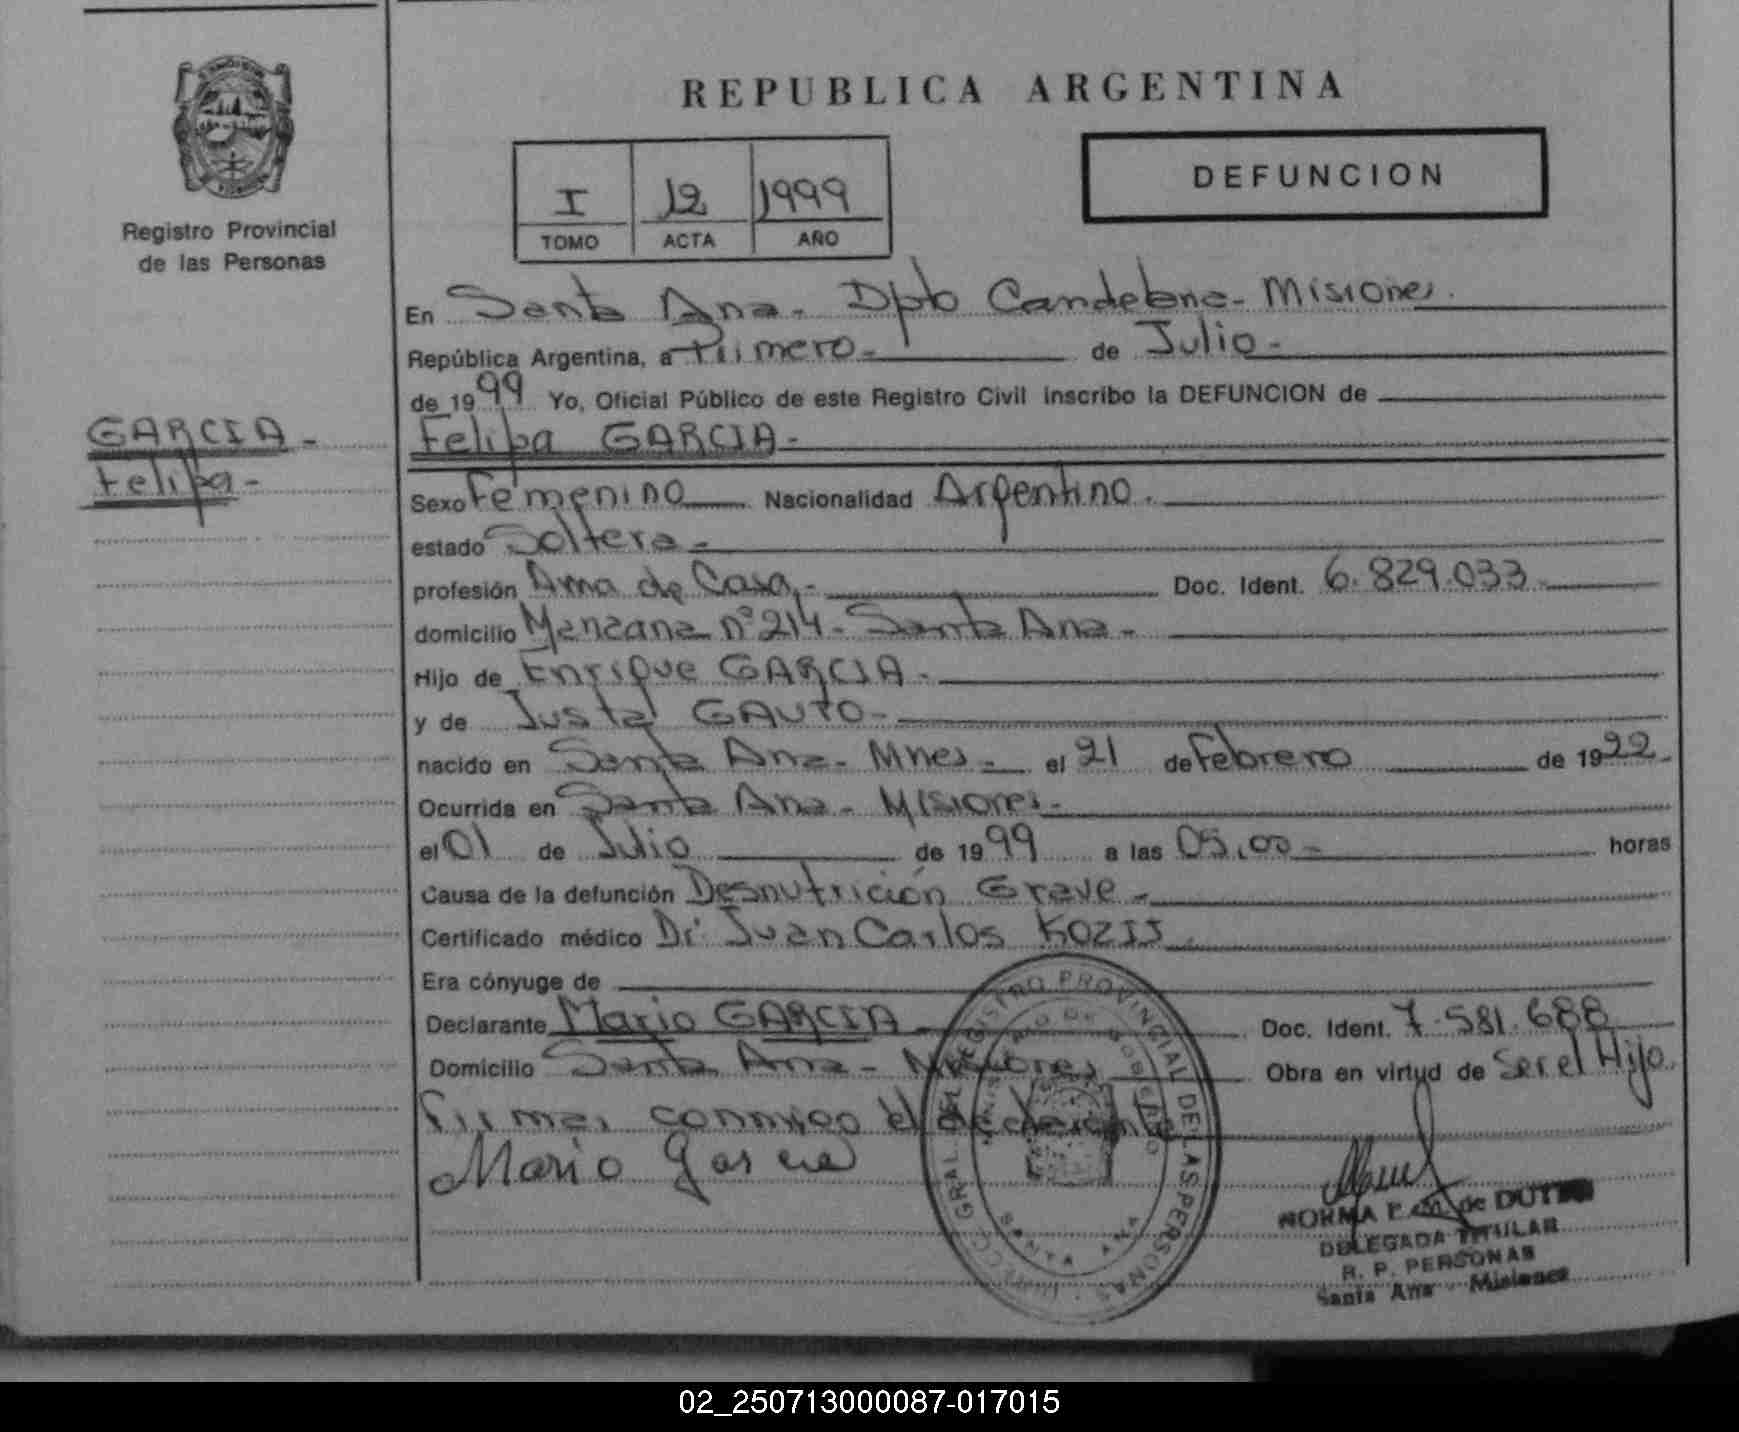 REPUBLICA ARGENTINA
Registro Provincial
de las Personas
I 12 1999
TOMO ACTA AÑO
DEFUNCION
GARCIA -
Felipa -
En Santa Ana - Dpto Candelaria - Misiones.
República Argentina, a Primero - de Julio -
de 1999 Yo, Oficial Público de este Registro Civil inscribo la DEFUNCION de
Felipa GARCIA -
Sexo Femenino Nacionalidad Argentino.
estado Soltera -
profesión Ama de Casa - Doc. Ident. 6.829.033 -
domicilio Manzana nº 214 - Santa Ana -
Hijo de Enrique GARCIA -
y de Justa GAUTO -
nacido en Santa Ana - Mnes - el 21 de Febrero de 1922 -
Ocurrida en Santa Ana - Misiones -
el 01 de Julio de 1999 a las 05,00 - horas
Causa de la defunción Desnutrición Grave -
Certificado médico Dr. Juan Carlos KOZIJ
Era cónyuge de
Declarante Mario GARCIA - Doc. Ident. 7.581.688
Domicilio Santa Ana - Misiones Obra en virtud de Ser el Hijo.
Firma, conmigo el declarante
Mario Garcia
REGISTRO PROVINCIAL DE LAS PERSONAS
MINISTERIO DE GOBIERNO
SANTA ANA
NORMA de
DELEGADA TITULAR
R. P. PERSONAS
Santa Ana - Misiones
02_250713000087-017015